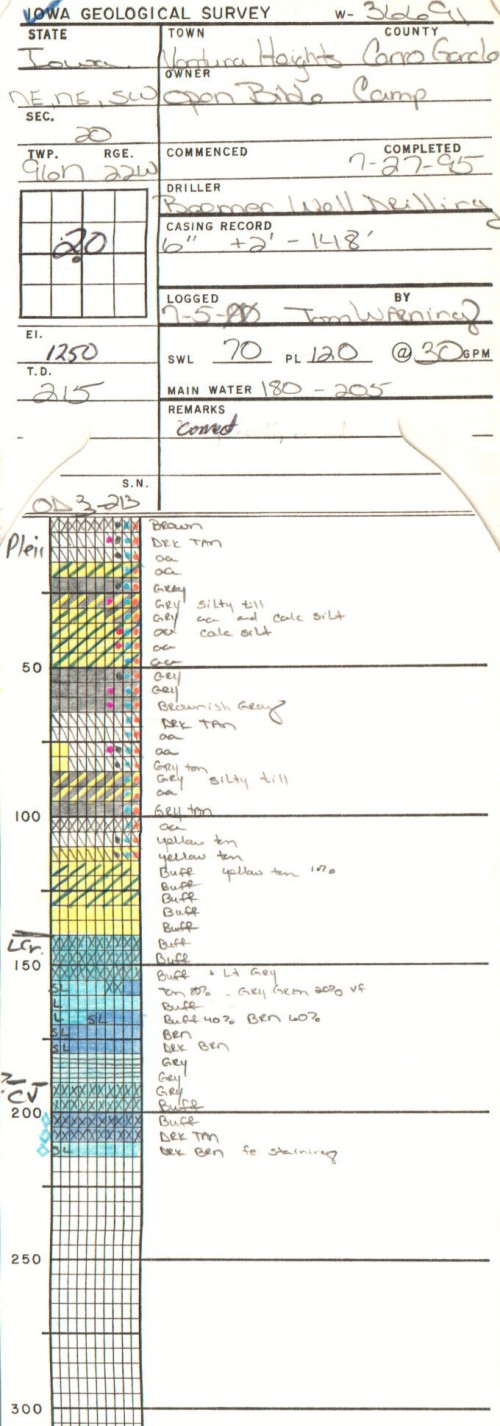 IOWA GEOLOGICAL SURVEY W-
STATE TOWN COUNTY
Iowa Ventura Heights Cerro Gordo
OWNER
NE, NE, SW Open Bible Camp
SEC.
20
TWP. RGE. COMMENCED COMPLETED
96N 22W 7-27-95
DRILLER
Boomer Well Drilling
20
CASING RECORD
6" +2' - 148'
LOGGED BY
7-5-
El.
1250
SWL 70 PL 120 @ 30 GPM
T.D.
215
MAIN WATER 180 - 205
REMARKS
Comed
S.N.
OD 3-213
Plei
Brown
DRK TAN
aa
aa
Gray
GRY silty till
GRY aa and calc silt
aa calc silt
aa
aa
50
GRY
GRY
Brownish Gray
DRK TAN
aa
aa
GRY tan
GRY silty till
aa
GRY tan
100
aa
yellow tan
yellow tan
Buff yellow tan 10%
Buff
Buff
Buff
Buff
LCr
Buff
Buff
150
Buff & Lt Grey
SL
Tan 80% - Gry Green 20% vf
L
Buff
L SL
Buff 40% BRN 60%
SL
BRN
SL
DRK BRN
GRY
GRY
?
CV
GRY
L
Buff
200
Buff
DRK TAN
SL
DRK BRN fe staining
250
300